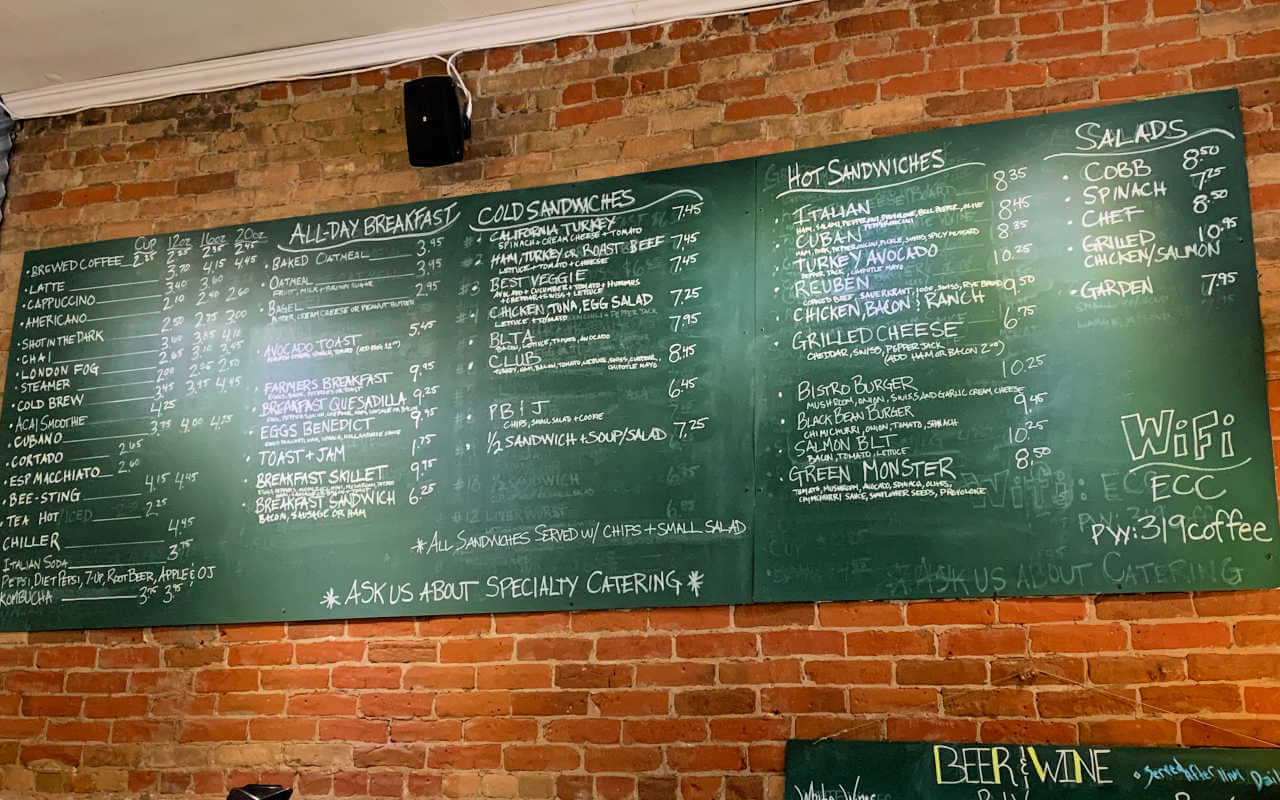 CUP 12oz 16oz 20oz
BREWED COFFEE 2.45
LATTE 3.70 4.15 4.45
CAPPUCCINO 3.40 3.80
AMERICANO 2.10 2.40 2.60
SHOT IN THE DARK 2.50 2.75 3.00
CHAI 3.60
LONDON FOG 2.65 3.10 3.45
STEAMER 2.00 2.50
COLD BREW 3.45 3.95 4.45
ACAI SMOOTHIE 4.25
CUBANO 3.75 4.00
CORTADO 2.65
ESP MACCHIATO 2.60
BEE-STING 4.15 4.45
TEA HOT/ICED 2.25
CHILLER 4.45
ITALIAN SODA 3.75
PEPSI, DIET PEPSI, 7-UP, ROOT BEER, APPLE & OJ
KOMBUCHA 3.75 3.95
ALL-DAY BREAKFAST
BAKED OATMEAL 3.95
OATMEAL 3.95
FRUIT, MILK + BROWN SUGAR
BAGEL 2.95
BUTTER, CREAM CHEESE OR PEANUT BUTTER
AVOCADO TOAST 5.45
FARMERS BREAKFAST 9.95
BREAKFAST QUESADILLA 9.25
EGGS BENEDICT 9.95
TOAST + JAM 1.75
BREAKFAST SKILLET 9.95
BREAKFAST SANDWICH 6.25
BACON, SAUSAGE OR HAM
COLD SANDWICHES
CALIFORNIA TURKEY 7.45
SPINACH + CREAM CHEESE + TOMATO
HAM, TURKEY OR ROAST BEEF 7.45
LETTUCE + TOMATO + CHEESE
BEST VEGGIE 7.45
AVOCADO + CUCUMBER + TOMATO + HUMMUS
+ PEPPER + SWISS + LETTUCE
CHICKEN, TUNA, EGG SALAD 7.25
LETTUCE + TOMATO
BLTA 7.95
BACON, LETTUCE, TOMATO, AVOCADO
CLUB 8.45
TURKEY, HAM, BACON, TOMATO, LETTUCE, SWISS, CHEDDAR,
CHIPOTLE MAYO
PB & J 6.45
CHIPS, SMALL SALAD + COOKIE
1/2 SANDWICH + SOUP/SALAD 7.25
*ALL SANDWICHES SERVED W/ CHIPS + SMALL SALAD
* ASK US ABOUT SPECIALTY CATERING *
HOT SANDWICHES
ITALIAN 8.35
HAM, SALAMI, PEPPERONI, PROVOLONE, BELL PEPPER, OLIVE
PEPPERONCINI
CUBAN 8.45
HAM, PORK, PEPPERONCINI, PICKLE, SWISS, SPICY MUSTARD
TURKEY AVOCADO 8.35
PEPPER JACK, CHIPOTLE MAYO
REUBEN 10.25
CORNED BEEF, SAUERKRAUT, 1000, SWISS, RYE BREAD
CHICKEN, BACON & RANCH 9.50
GRILLED CHEESE 6.75
CHEDDAR, SWISS, PEPPER JACK
(ADD HAM OR BACON 2.00)
BISTRO BURGER 10.25
MUSHROOM, ONION, SWISS AND GARLIC CREAM CHEESE
BLACK BEAN BURGER 9.45
CHIMICHURRI, ONION, TOMATO, SPINACH
SALMON BLT 10.25
BACON, TOMATO, LETTUCE
GREEN MONSTER 8.50
TOMATO, MUSHROOM, AVOCADO, SPINACH, OLIVES,
CHIMICHURRI SAUCE, SUNFLOWER SEEDS, PROVOLONE
SALADS
COBB 8.50
SPINACH 7.25
CHEF 8.50
GRILLED 10.95
CHICKEN/SALMON
GARDEN 7.95
WiFi
ECC
PW: 319coffee
ASK US ABOUT CATERING
BEER & WINE
Served After Daily
White Wine